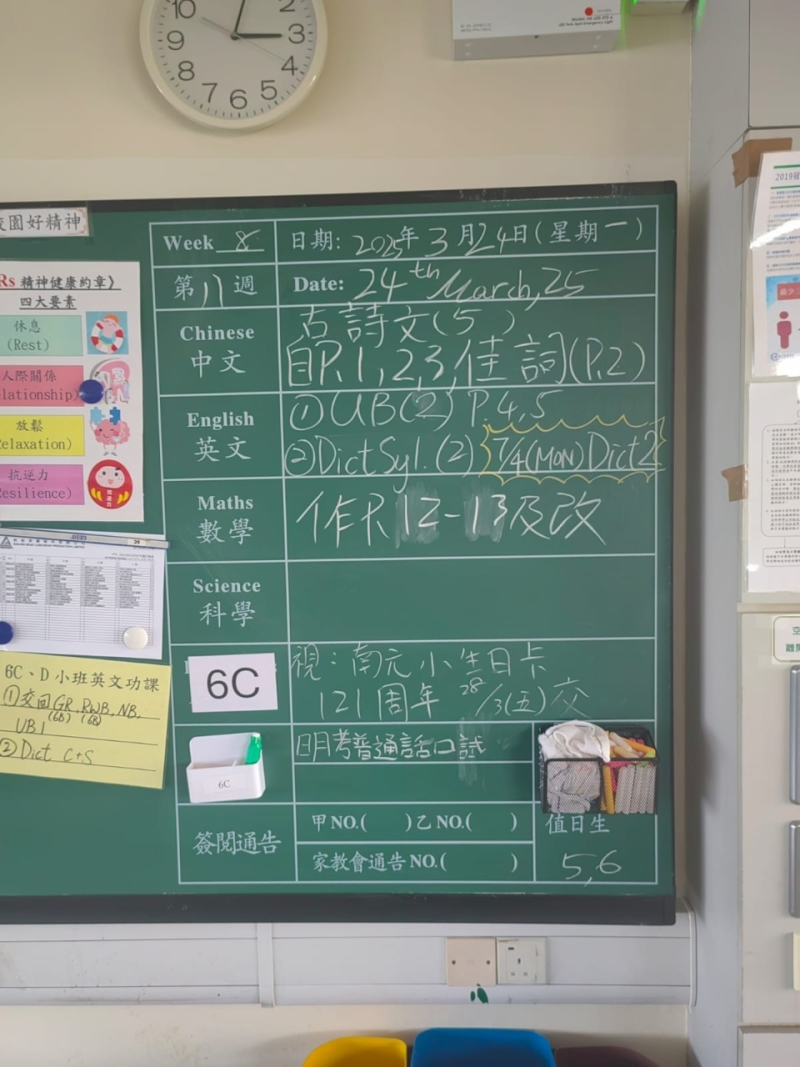 10
9
8
7
6
5
4
3
2
園好精神
Rs 精神健康約章》
四大要素
休息
(Rest)
人際關係
elationship)
放鬆
elaxation)
抗逆力
esilience)
6C、D 小班英文功課
①交回GR, RWB, NB,
(6B) (6B)
UB1
②Dict C+S
Week 8
日期: 2025年3月24日(星期一)
第八週
Date: 24th March, 25
Chinese
中文
古詩文(5)
P.1,2,3,佳詞(P.2)
English
英文
①UB(2) P.4,5
②Dict Syl.(2) 7/4(MON) Dict 2
Maths
數學
作P.12-13及改
Science
科學
6C
視:南元小生日卡
121周年 28/3(五)交
6C
明考普通話口試
簽閱通告
甲NO.( )乙NO.( )
家教會通告NO.( )
值日生
5,6
2019